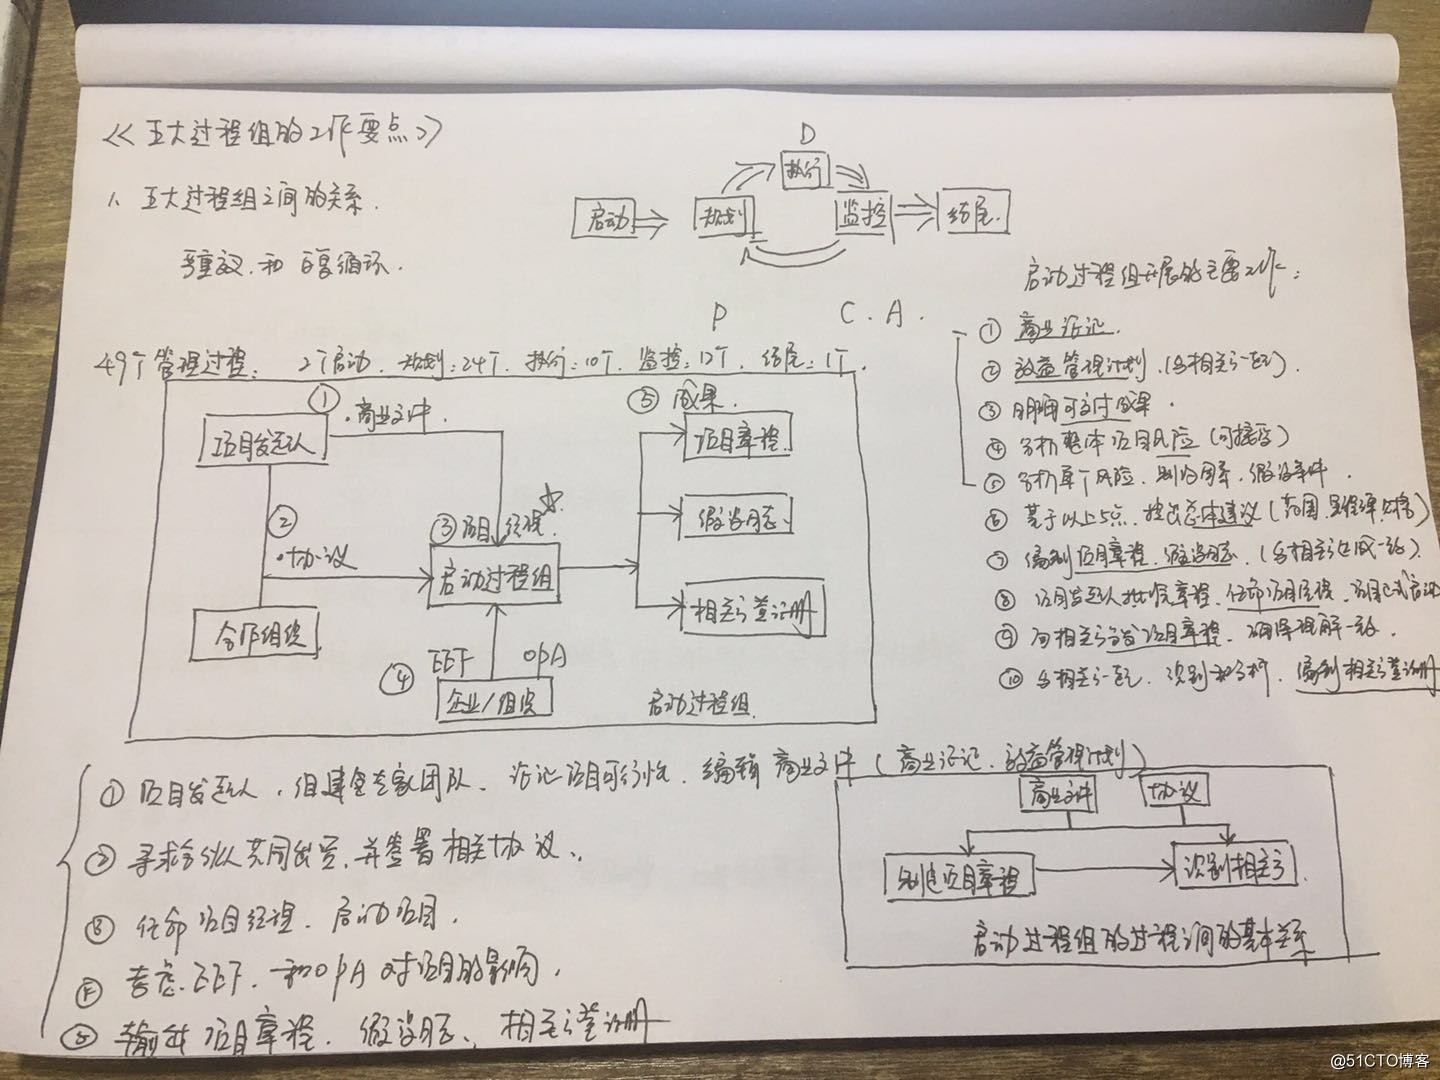 <<五大过程组的工作要点>>
1、五大过程组之间的关系.
重议.和 循环.
D
执行
启动
规划
监控
结尾.
P
C.A.
49个管理过程: 2个启动. 规划:24个. 执行:10个. 监控:12个. 结尾:1个.
①
·商业文件
项目发起人
②
·协议
合作组织
③项目经理.☆
启动过程组
④
EEF OPA
企业/组织
⑤成果.
项目章程.
假设日志、
相关方登记册
启动过程组.
启动过程组开展的主要工作:
①商业论证.
②效益管理计划.(与相关方一起).
③明确可交付成果.
④分析整体项目风险(可接受)
⑤分析单个风险、制约因素、假设条件.
⑥基于以上5点、提出总体建议(范围、里程碑、
⑦编制项目章程、假设日志.(与相关方达成一致).
⑧项目发起人批准章程、任命项目经理、项目正式启动
⑨向相关方分发项目章程、确保理解一致.
⑩与相关方一起、识别和分析、编制相关方登记册
①项目发起人、组建专家团队、论证项目可行性、编辑商业文件(商业论证、效益管理计划)
②寻求合伙人共同出资、并签署相关协议、
③任命项目经理、启动项目.
④考虑EEF、和OPA对项目的影响.
⑤输出项目章程、假设日志、相关方登记册
商业文件
协议
制定项目章程
识别相关方
启动过程组的过程之间的基本关系
@51CTO博客